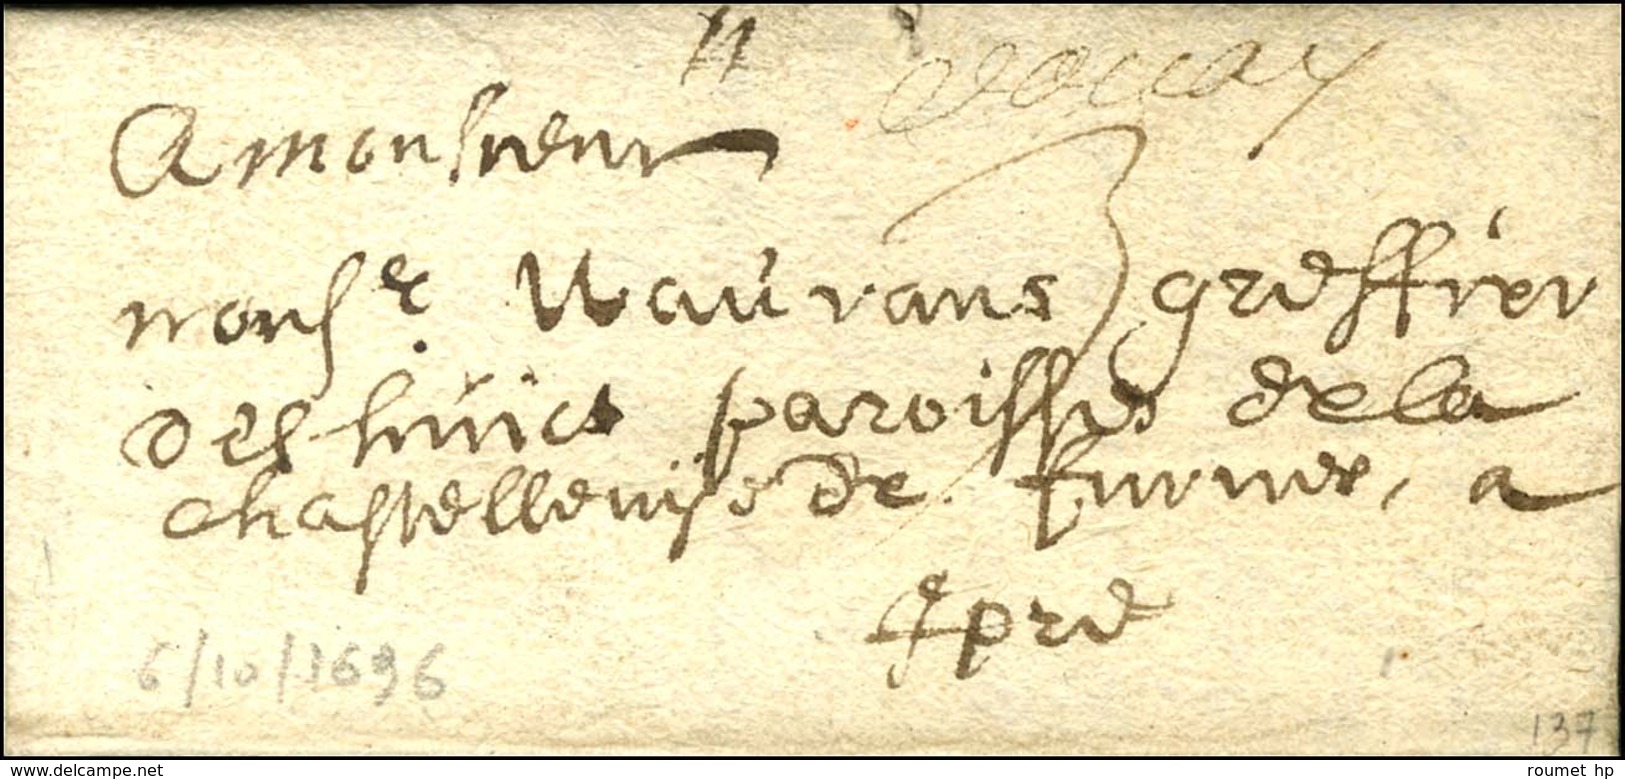 douay
A monsieur
monsr. Wauvans greffier
des huict paroisses de la
chastellenise de furnes, a
Ipre
6/10/1696
137
www.delcampe.net
roumet hp